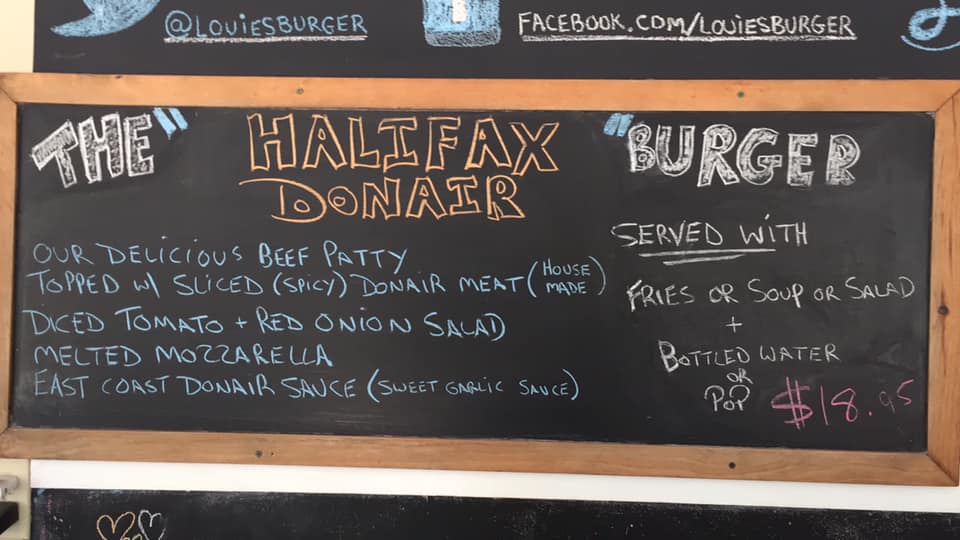 @LOUIESBURGER
FACEBOOK.COM/LOUIESBURGER
THE "HALIFAX DONAIR" BURGER
OUR DELICIOUS BEEF PATTY
TOPPED W/ SLICED (SPICY) DONAIR MEAT (HOUSE MADE)
DICED TOMATO + RED ONION SALAD
MELTED MOZZARELLA
EAST COAST DONAIR SAUCE (SWEET GARLIC SAUCE)
SERVED WITH
FRIES OR SOUP OR SALAD
+
BOTTLED WATER
OR
POP
$18.95